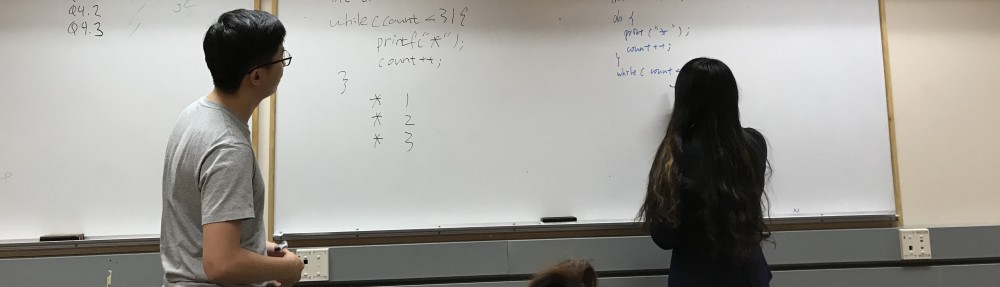 Q4.2
Q4.3
while (count < 3) {
printf("*");
count++;
}
* 1
* 2
* 3
do {
print ("*");
count++;
}
while ( count <